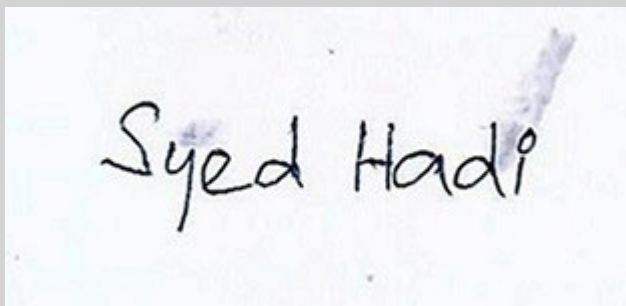 Syed Hadi